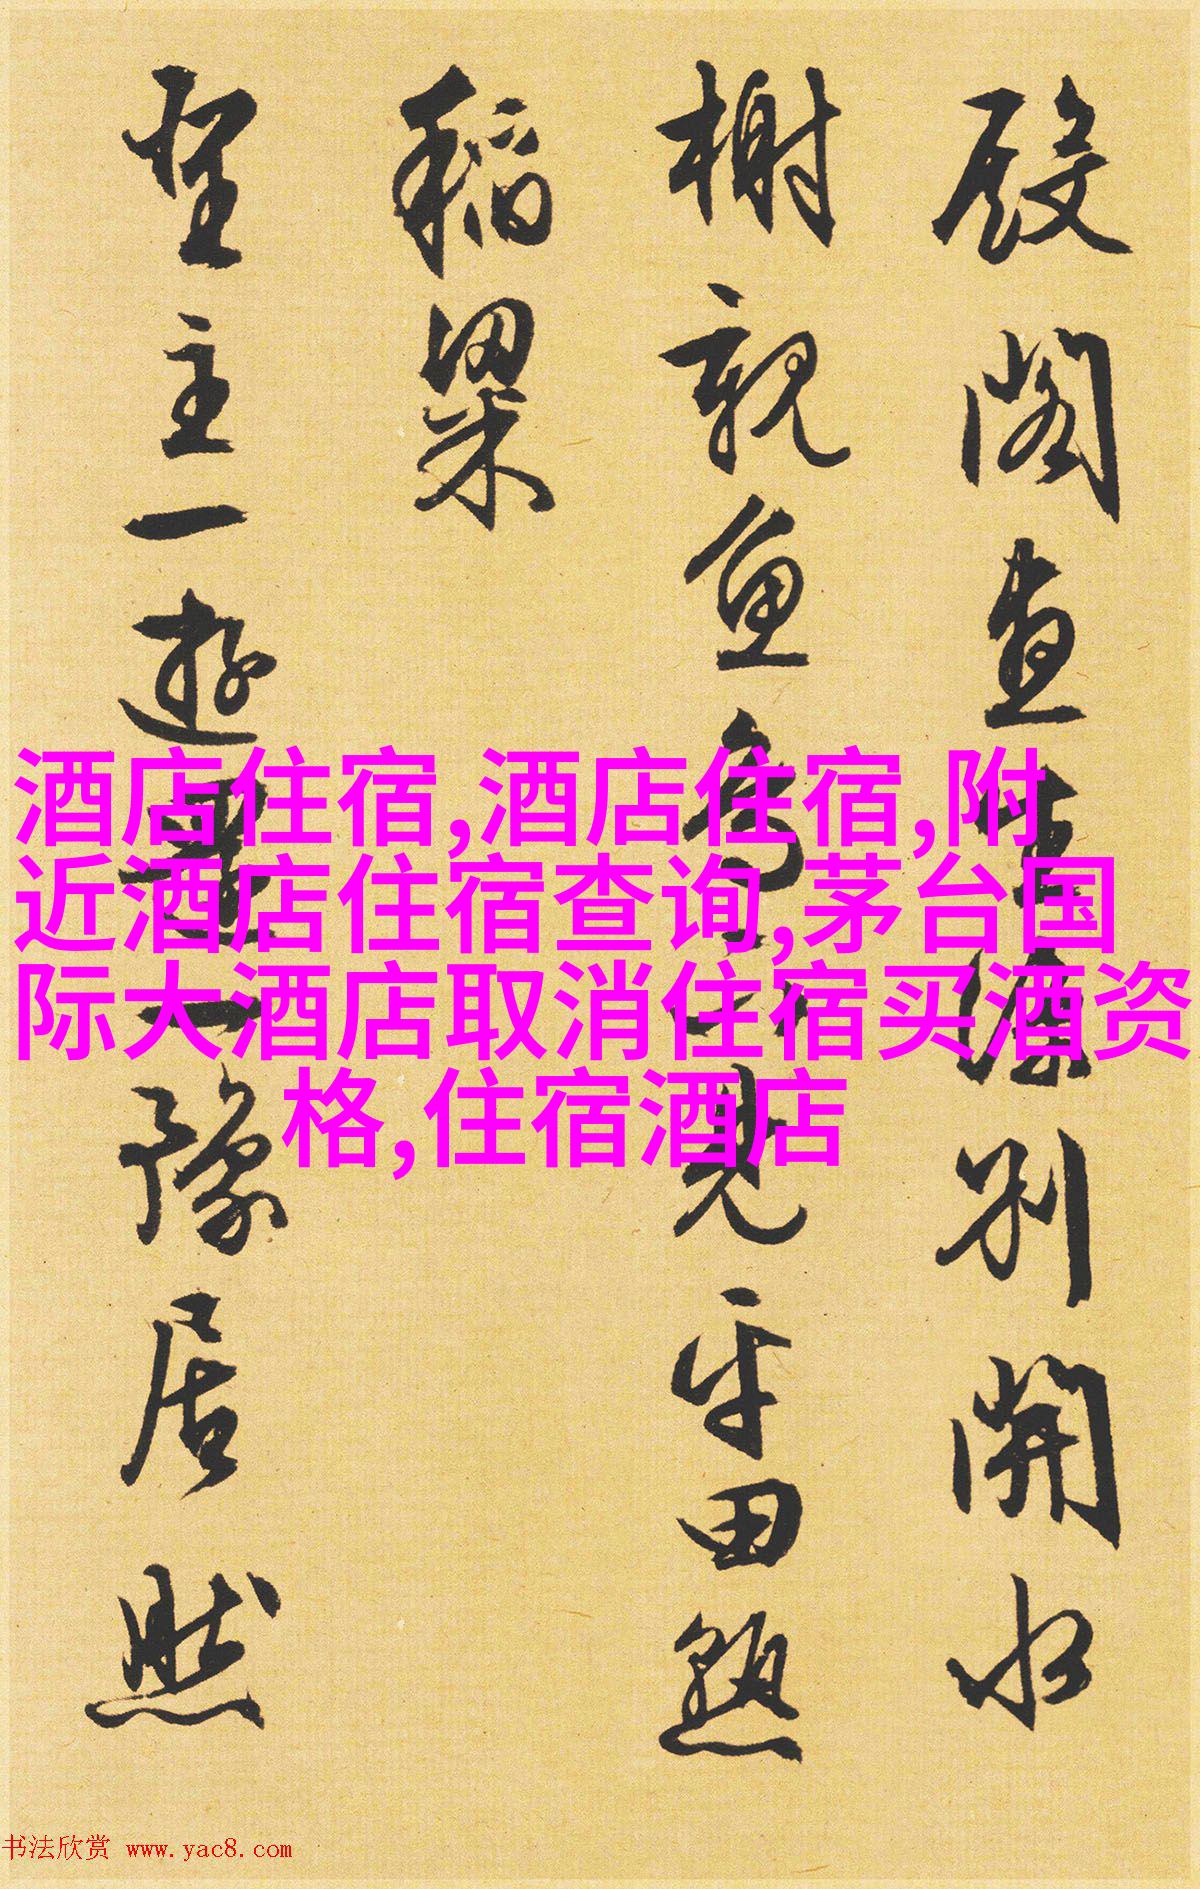 殿閣直生涼別開水
榭觀魚鳥見平田熟
稻粱
聖主一遊一豫居然
酒店住宿,酒店住宿,附
近酒店住宿查询,茅台国
际大酒店取消住宿买酒资
格,住宿酒店
书法欣赏 www.yac8.com